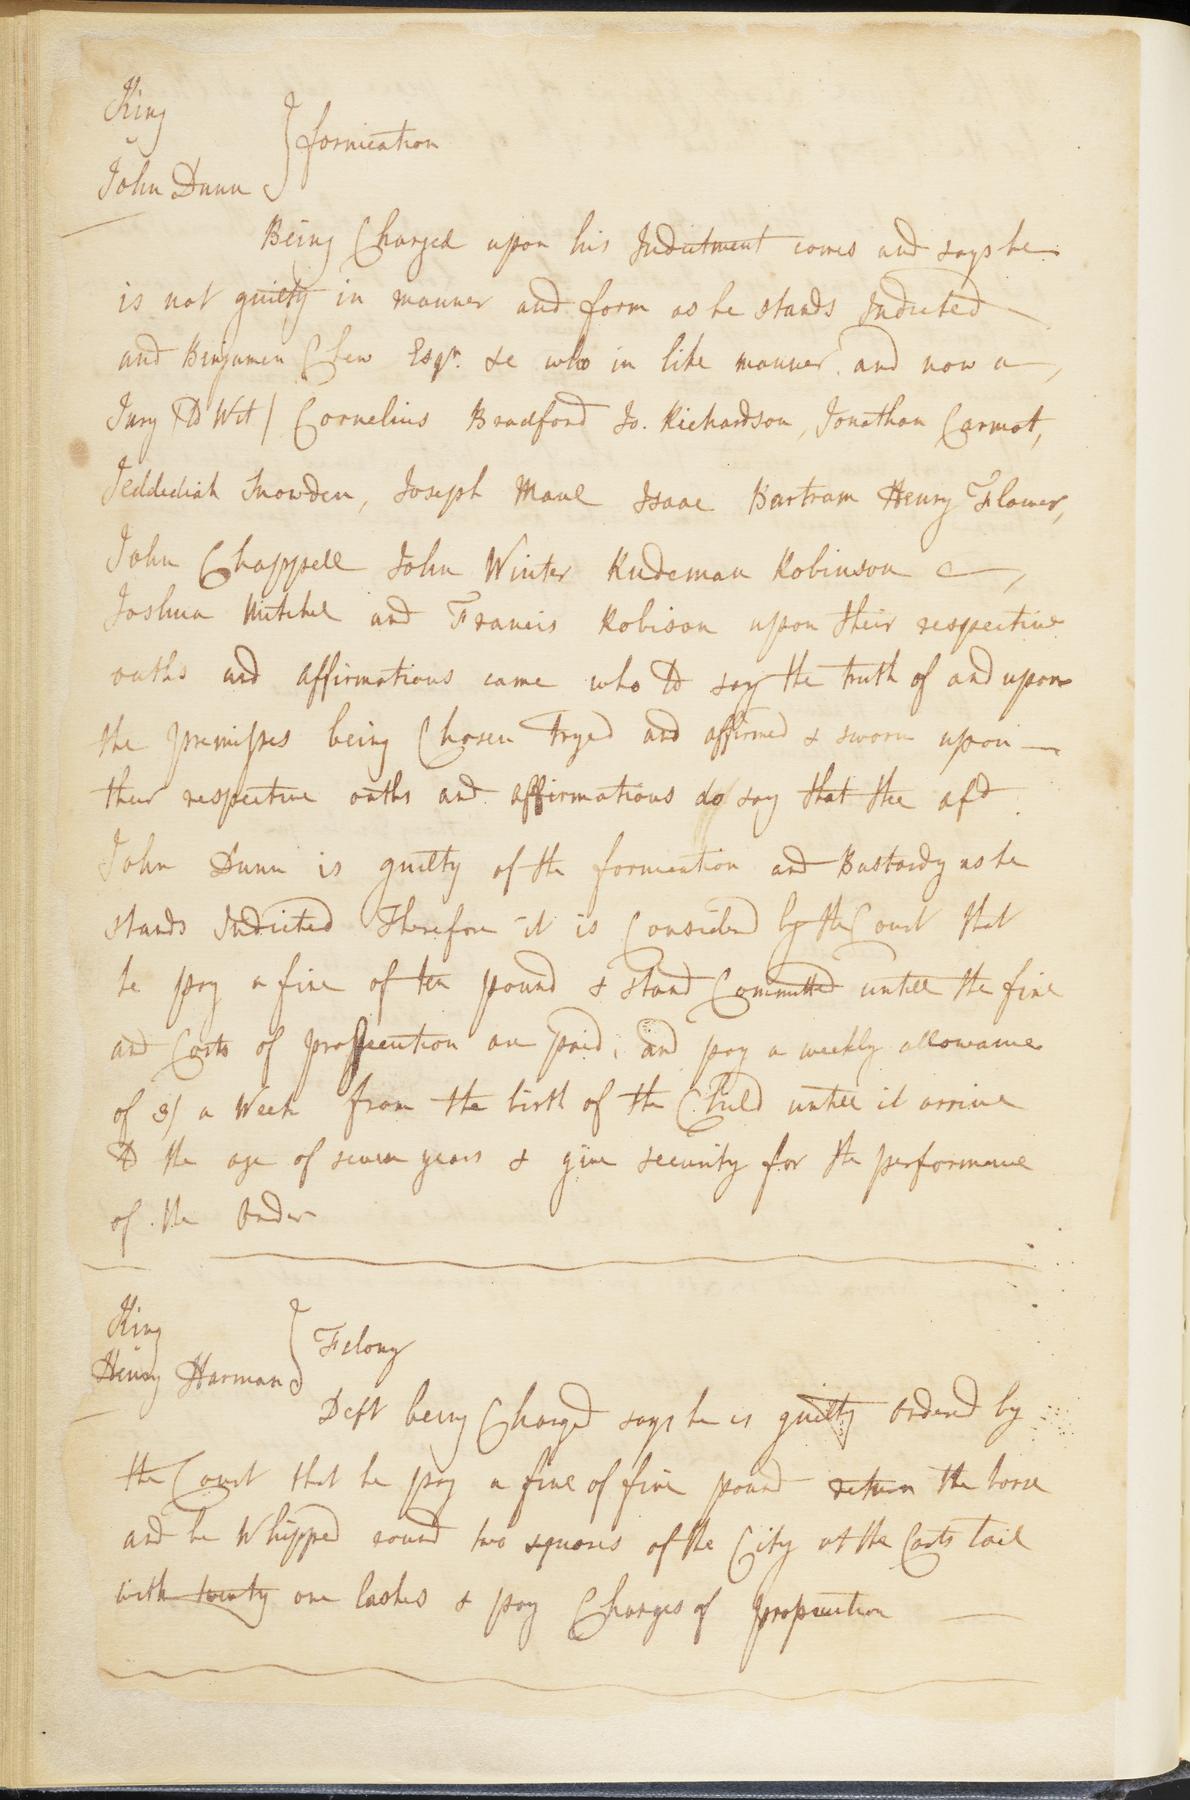 King
v
John Dunn } fornication
Being Charged upon his Indictment comes and says he
is not guilty in manner and form as he stands Indicted
and Benjamin Chew Esqr. &c who in like manner. and now a
Jury (to Wit) Cornelius Bradford Jo. Richardson, Jonathan Carmot,
Jeddediah Snowden, Joseph Maul Isaac Bartram Henry Flower,
John Chappell John Winter Rudeman Robinson
Joshua Mitchel and Francis Robison upon their respective
oaths and affirmations came who to say the truth of and upon
the premisses being Chosen Tryed and affirmed & sworn upon
their respective oaths and affirmations do say that the afd
John Dunn is guilty of the fornication and Bastardy as he
stands Indicted Therefore it is Considerd by the Court that
he pay a fine of ten pound & stand Committed untill the fine
and Costs of prossecution are paid, and pay a weekly allowance
of 3/ a Week from the birth of the Child untill it arrive
to the age of seven years & give security for the performance
of the Order
King
v
Henry Harman } Felony
Deft being Charged says he is guilty Ordered by
the Court that he pay a fine of five pound return the horse
and be Whipped round two squares of the City at the Carts tail
with twenty one lashes & pay Charges of prossecution